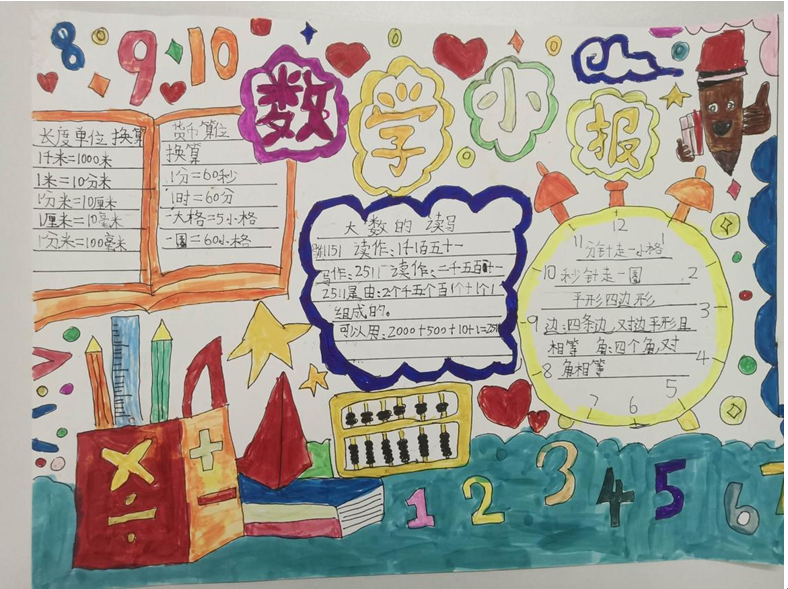 8 9 10
数学小报
长度单位换算
1千米=1000米
1米=10分米
1分米=10厘米
1厘米=10毫米
1分米=100毫米
货币算位
换算
1分=60秒
1时=60分
一大格=5小格
一圆=60小格
大数的读写
1151 读作:1千1百五十一
写作:2511 读作:二千五百十一
2511是由:2个千五个百1个十1个1
组成的。
可以用:2000+500+10+1=2511
12
11 1
分针走一小格
10 秒针走一圆 2
平形四边形
3
9 边:四条边,对边平形且
相等 角:四个角,对 4
8 角相等
7 6 5
× + ÷ −
1 2 3 4 5 6 7